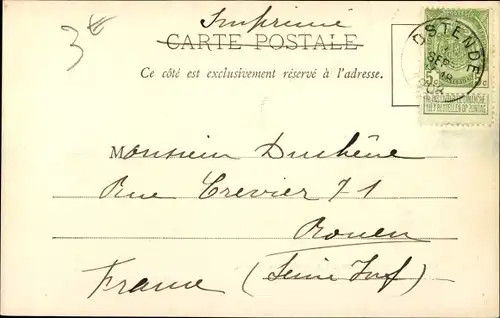 3€
Imprimé
CARTE POSTALE
Ce côté est exclusivement réservé à l'adresse.
OSTENDE
SEPT
5
NE PAS LIVRER LE DIMANCHE
NIET BESTELLEN OP ZONDAG
Monsieur Duchêne
Rue Crevier 71
Rouen
France (Seine Inf)